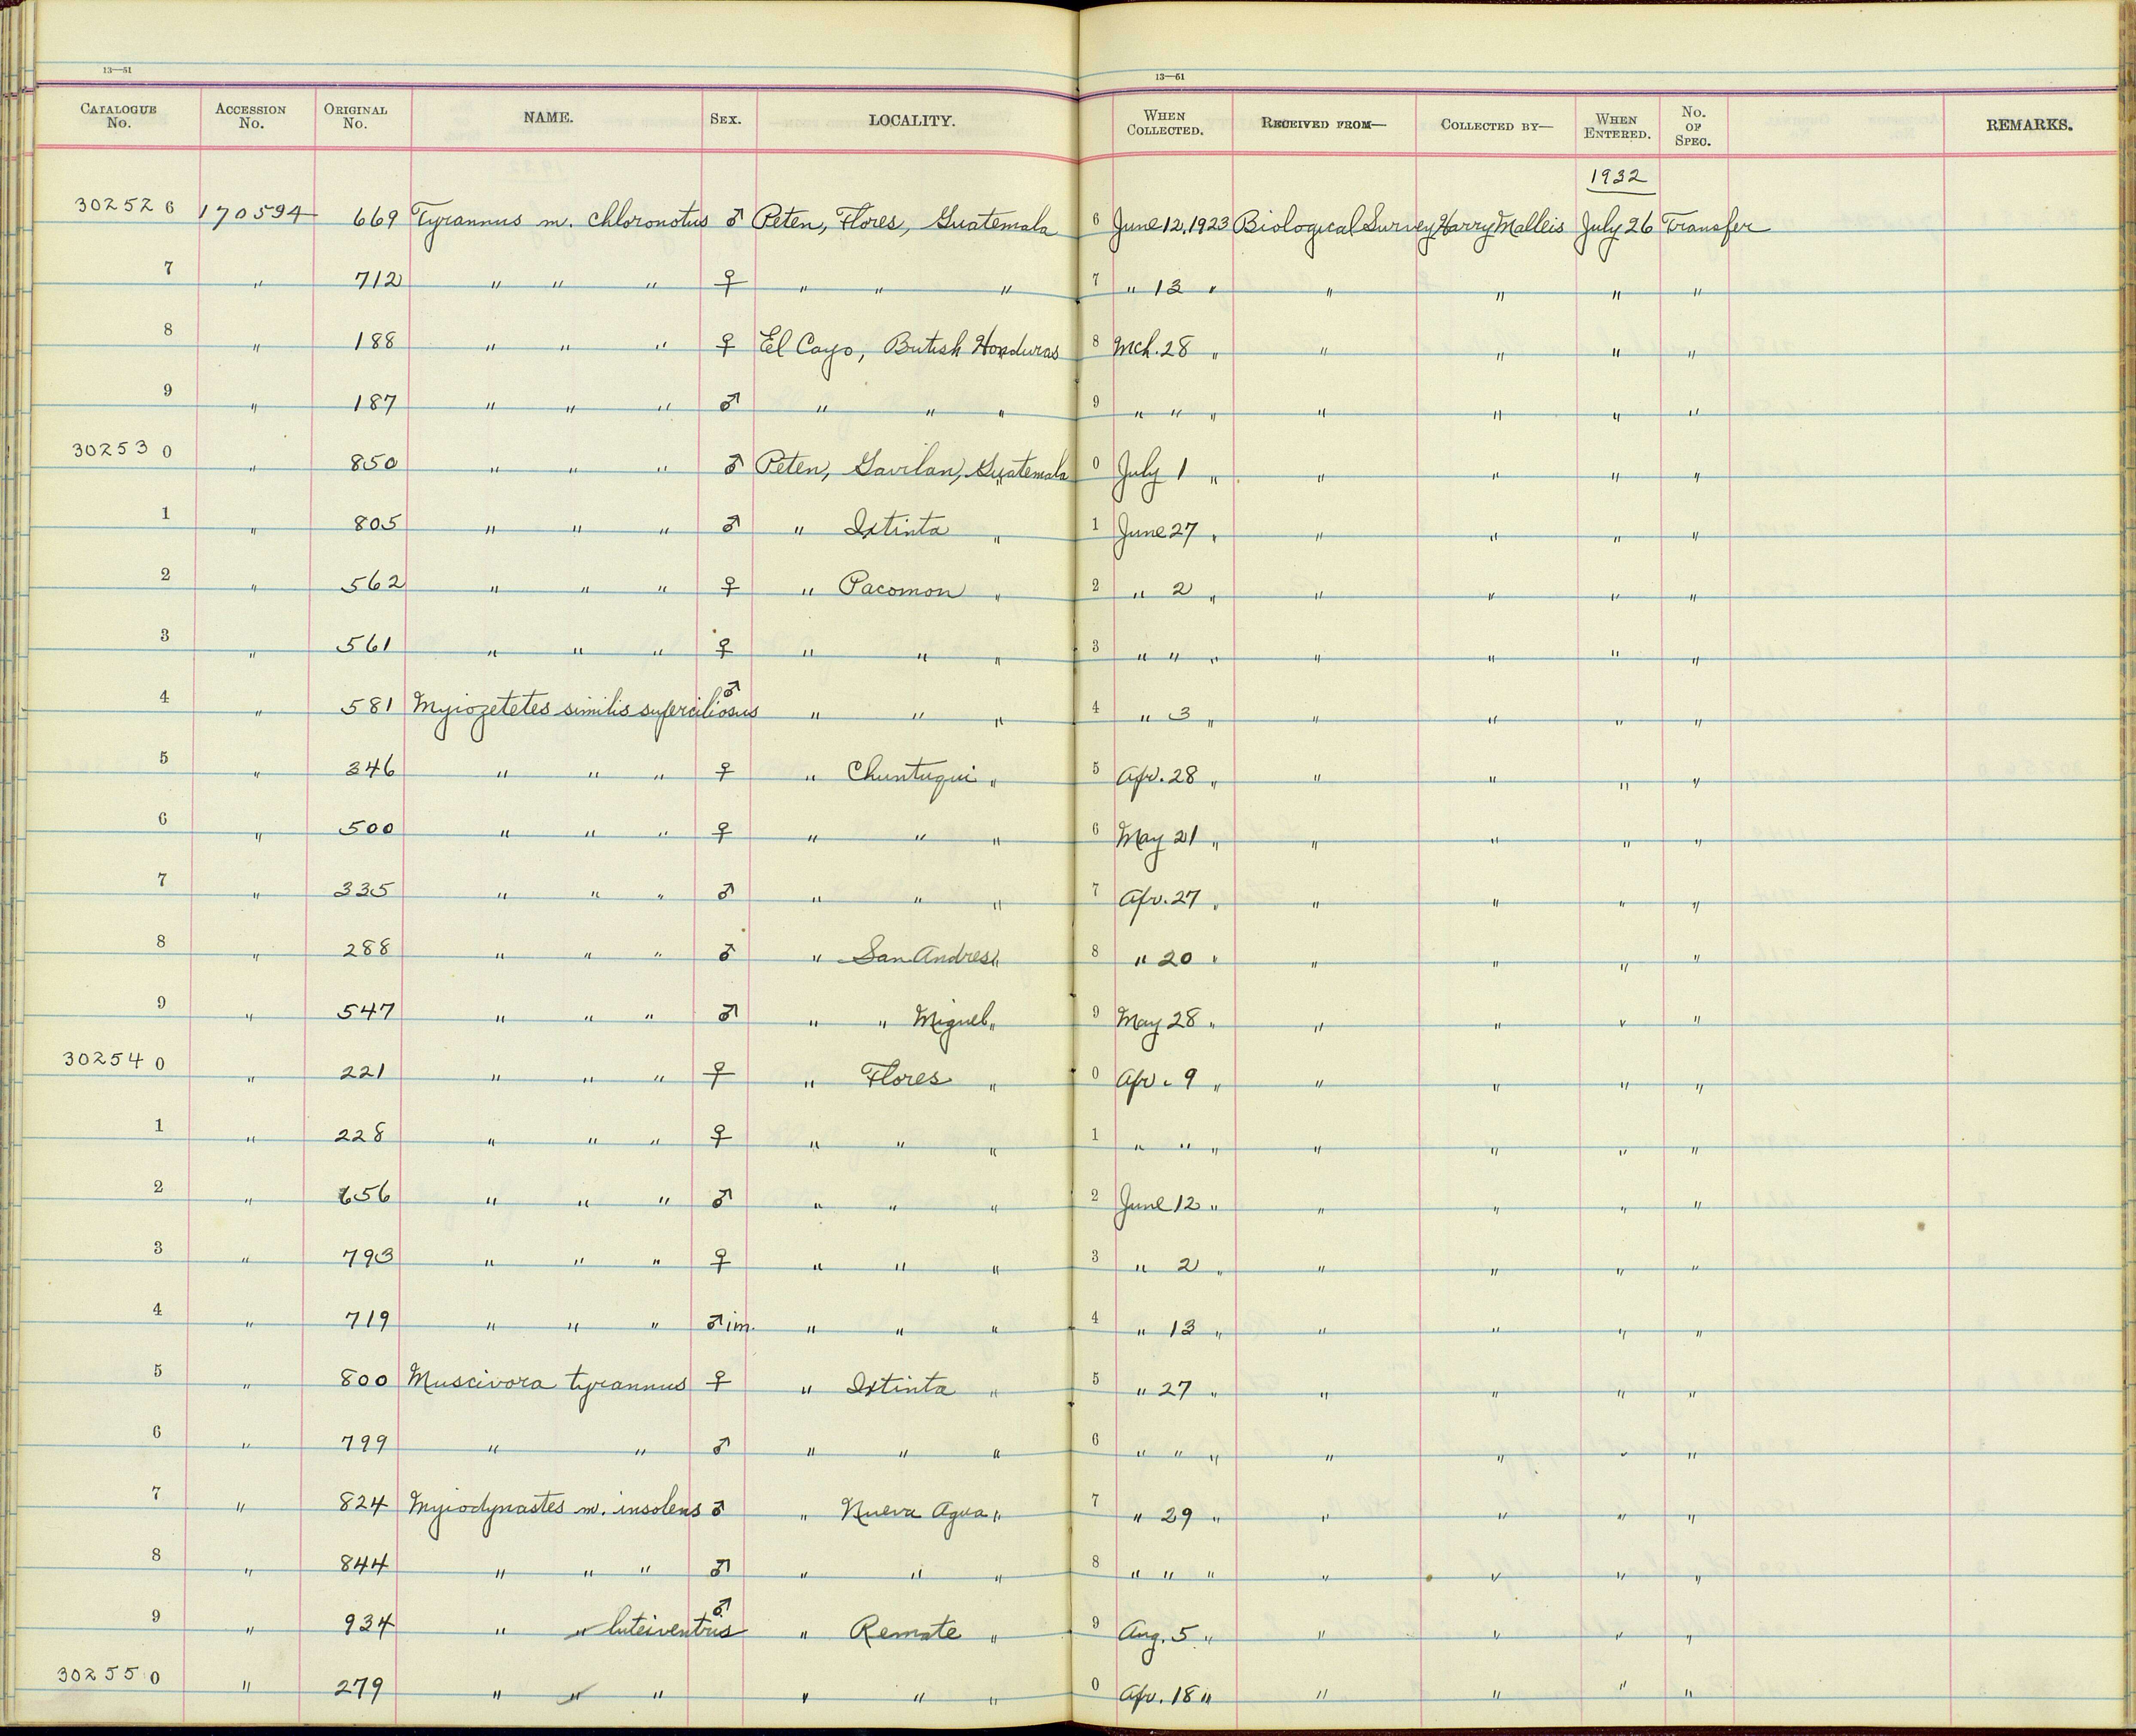 13—61
13—61
CATALOGUE No. ACCESSION No. ORIGINAL No. NAME. SEX. LOCALITY. WHEN COLLECTED. RECEIVED FROM— COLLECTED BY— WHEN ENTERED. No. OF SPEC. REMARKS.
1932
302526 170594 669 Tyrannus m. chloronotus ♂ Peten, Flores, Guatemala 6 June 12, 1923 Biological Survey Harry Malleis July 26 Transfer
7 " 712 " " " ♀ " " " 7 " 13 " " " " "
8 " 188 " " " ♀ El Cayo, British Honduras 8 Mch. 28 " " " " "
9 " 187 " " " ♂ " " " 9 " " " " " " "
302530 " 850 " " " ♂ Peten, Gavilan, Guatemala 0 July 1 " " " " "
1 " 805 " " " ♂ " Ixtinta " 1 June 27 " " " " "
2 " 562 " " " ♀ " Pacomon " 2 " 2 " " " " "
3 " 561 " " " ♀ " " " 3 " " " " " " "
4 " 581 Myiozetetes similis superciliosus ♂ " " " 4 " 3 " " " " "
5 " 346 " " " ♀ " Chuntuqui " 5 Apr. 28 " " " " "
6 " 500 " " " ♀ " " " 6 May 21 " " " " "
7 " 335 " " " ♂ " " " 7 Apr. 27 " " " " "
8 " 288 " " " ♂ " San Andres " 8 " 20 " " " " "
9 " 547 " " " ♂ " " Miguel " 9 May 28 " " " " "
302540 " 221 " " " ♀ " Flores " 0 Apr. 9 " " " " "
1 " 228 " " " ♀ " " " 1 " " " " " " "
2 " 656 " " " ♂ " " " 2 June 12 " " " " "
3 " 793 " " " ♀ " " " 3 " 2 " " " " "
4 " 719 " " " ♂ im. " " " 4 " 13 " " " " "
5 " 800 Muscivora tyrannus ♀ " Ixtinta " 5 " 27 " " " " "
6 " 799 " " ♂ " " " 6 " " " " " " "
7 " 824 Myiodynastes m. insolens ♂ " Nueva Agua " 7 " 29 " " " " "
8 " 844 " " " ♂ " " " 8 " " " " " " "
9 " 934 " luteiventris ♂ " Remate " 9 Aug. 5 " " " " "
302550 " 279 " " " " " 0 Apr. 18 " " " " "